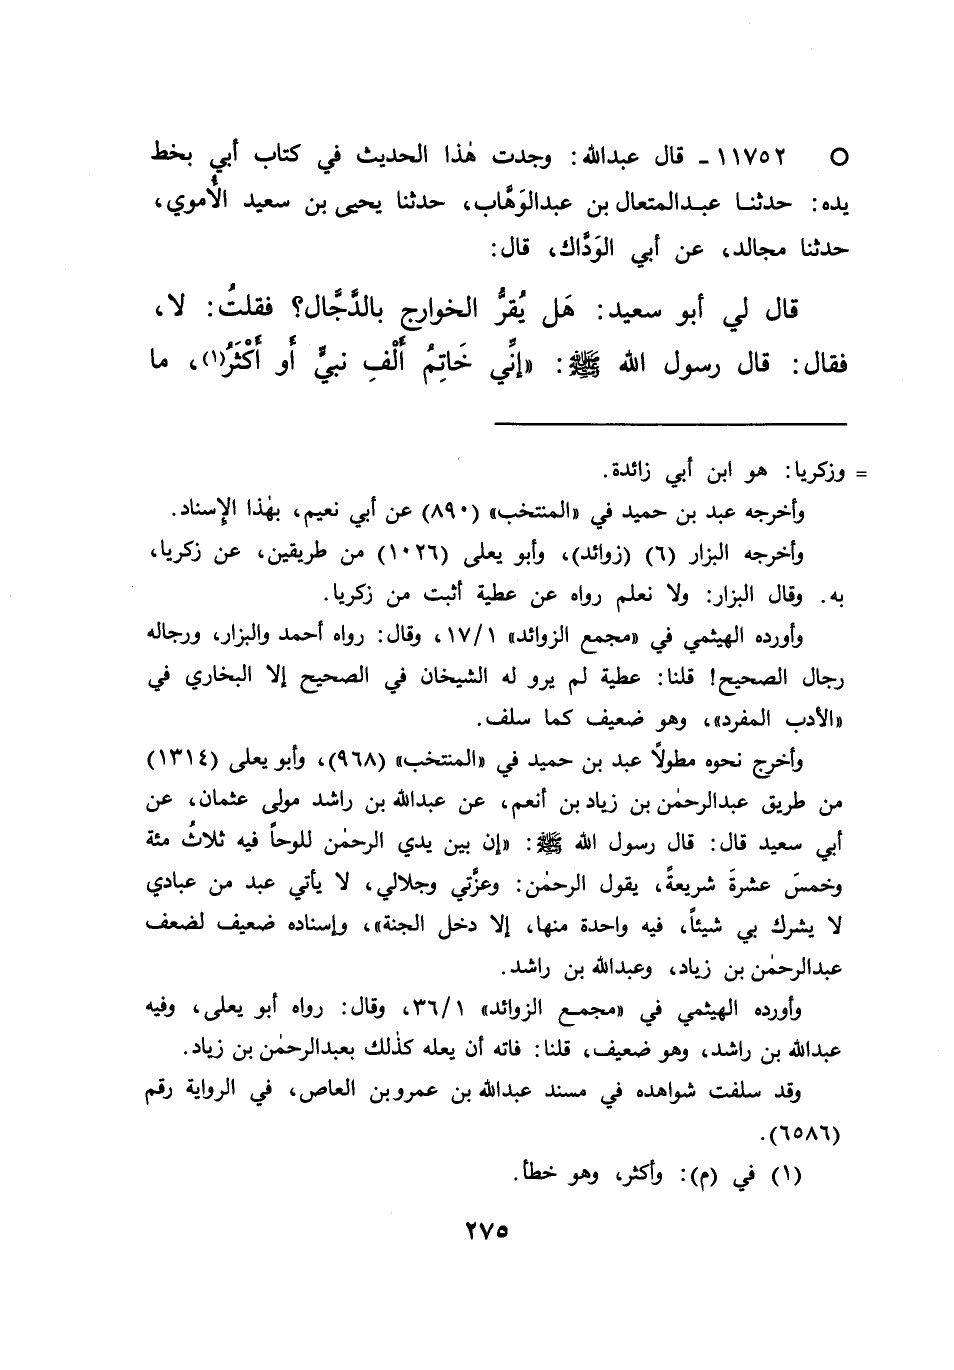 ○ ١١٧٥٢ - قال عبدالله: وجدت هٰذا الحديث في كتاب أبي بخط
يده: حدثنا عبدالمتعال بن عبدالوَهَّاب، حدثنا يحيى بن سعيد الأُموي،
حدثنا مجالد، عن أبي الوَدَّاك، قال:
قال لي أبو سعيد: هَل يُقرُّ الخوارج بالدَّجَّال؟ فقلتُ: لا،
فقال: قال رسول الله ﷺ: «إنِّي خَاتِمُ أَلْفِ نبيٍّ أَو أَكْثَرُ(١)، ما
= وزكريا: هو ابن أبي زائدة.
وأخرجه عبد بن حميد في «المنتخب» (٨٩٠) عن أبي نعيم، بهٰذا الإسناد.
وأخرجه البزار (٦) (زوائد)، وأبو يعلى (١٠٢٦) من طريقين، عن زكريا،
به. وقال البزار: ولا نعلم رواه عن عطية أثبت من زكريا.
وأورده الهيثمي في «مجمع الزوائد» ١٧/١، وقال: رواه أحمد والبزار، ورجاله
رجال الصحيح! قلنا: عطية لم يرو له الشيخان في الصحيح إلا البخاري في
«الأدب المفرد»، وهو ضعيف كما سلف.
وأخرج نحوه مطولاً عبد بن حميد في «المنتخب» (٩٦٨)، وأبو يعلى (١٣١٤)
من طريق عبدالرحمٰن بن زياد بن أنعم، عن عبدالله بن راشد مولى عثمان، عن
أبي سعيد قال: قال رسول الله ﷺ: «إن بين يدي الرحمٰن للوحاً فيه ثلاثُ مئة
وخمسَ عشرةَ شريعةً، يقول الرحمٰن: وعزَّتي وجلالي، لا يأتي عبد من عبادي
لا يشرك بي شيئاً، فيه واحدة منها، إلا دخل الجنة»، وإسناده ضعيف لضعف
عبدالرحمٰن بن زياد، وعبدالله بن راشد.
وأورده الهيثمي في «مجمع الزوائد» ٣٦/١، وقال: رواه أبو يعلى، وفيه
عبدالله بن راشد، وهو ضعيف، قلنا: فاته أن يعله كذٰلك بعبدالرحمٰن بن زياد.
وقد سلفت شواهده في مسند عبدالله بن عمرو بن العاص، في الرواية رقم
(٦٥٨٦).
(١) في (م): وأكثر، وهو خطأ.
٢٧٥